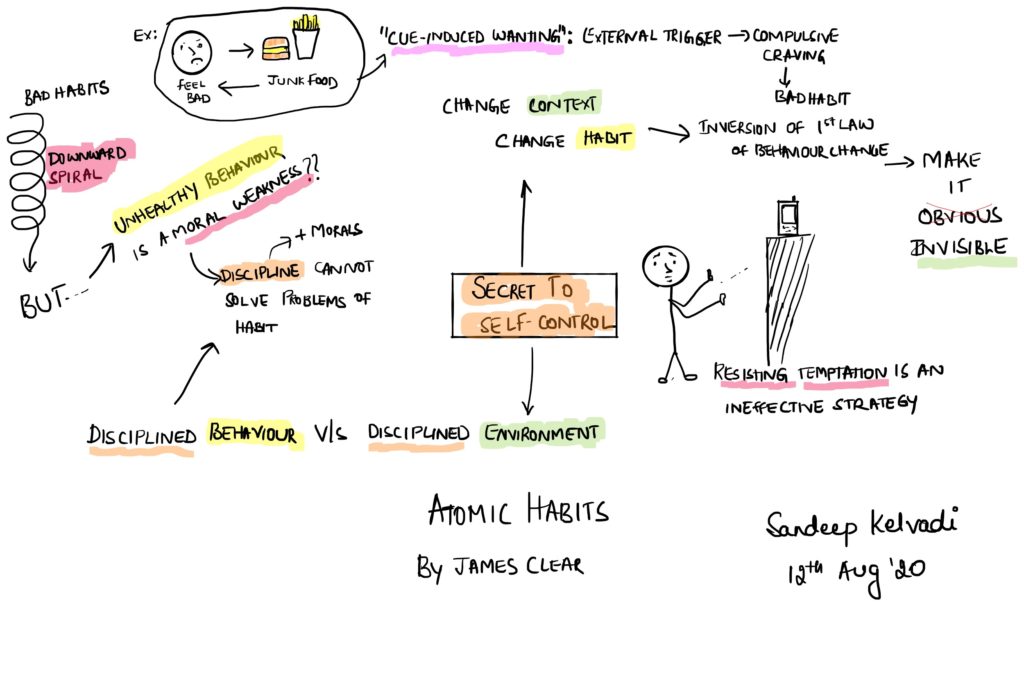 Ex:
FEEL
BAD
JUNK FOOD
"CUE-INDUCED WANTING": EXTERNAL TRIGGER → COMPULSIVE
CRAVING
BAD HABIT
BAD HABITS
DOWNWARD
SPIRAL
BUT...
UNHEALTHY BEHAVIOUR
IS A MORAL WEAKNESS??
+ MORALS
DISCIPLINE CANNOT
SOLVE PROBLEMS OF
HABIT
CHANGE CONTEXT
CHANGE HABIT
INVERSION OF 1st LAW
OF BEHAVIOUR CHANGE
MAKE
IT
OBVIOUS
INVISIBLE
SECRET TO
SELF-CONTROL
RESISTING TEMPTATION IS AN
INEFFECTIVE STRATEGY
DISCIPLINED BEHAVIOUR V/s DISCIPLINED ENVIRONMENT
ATOMIC HABITS
BY JAMES CLEAR
Sandeep Kelvadi
12th Aug '20